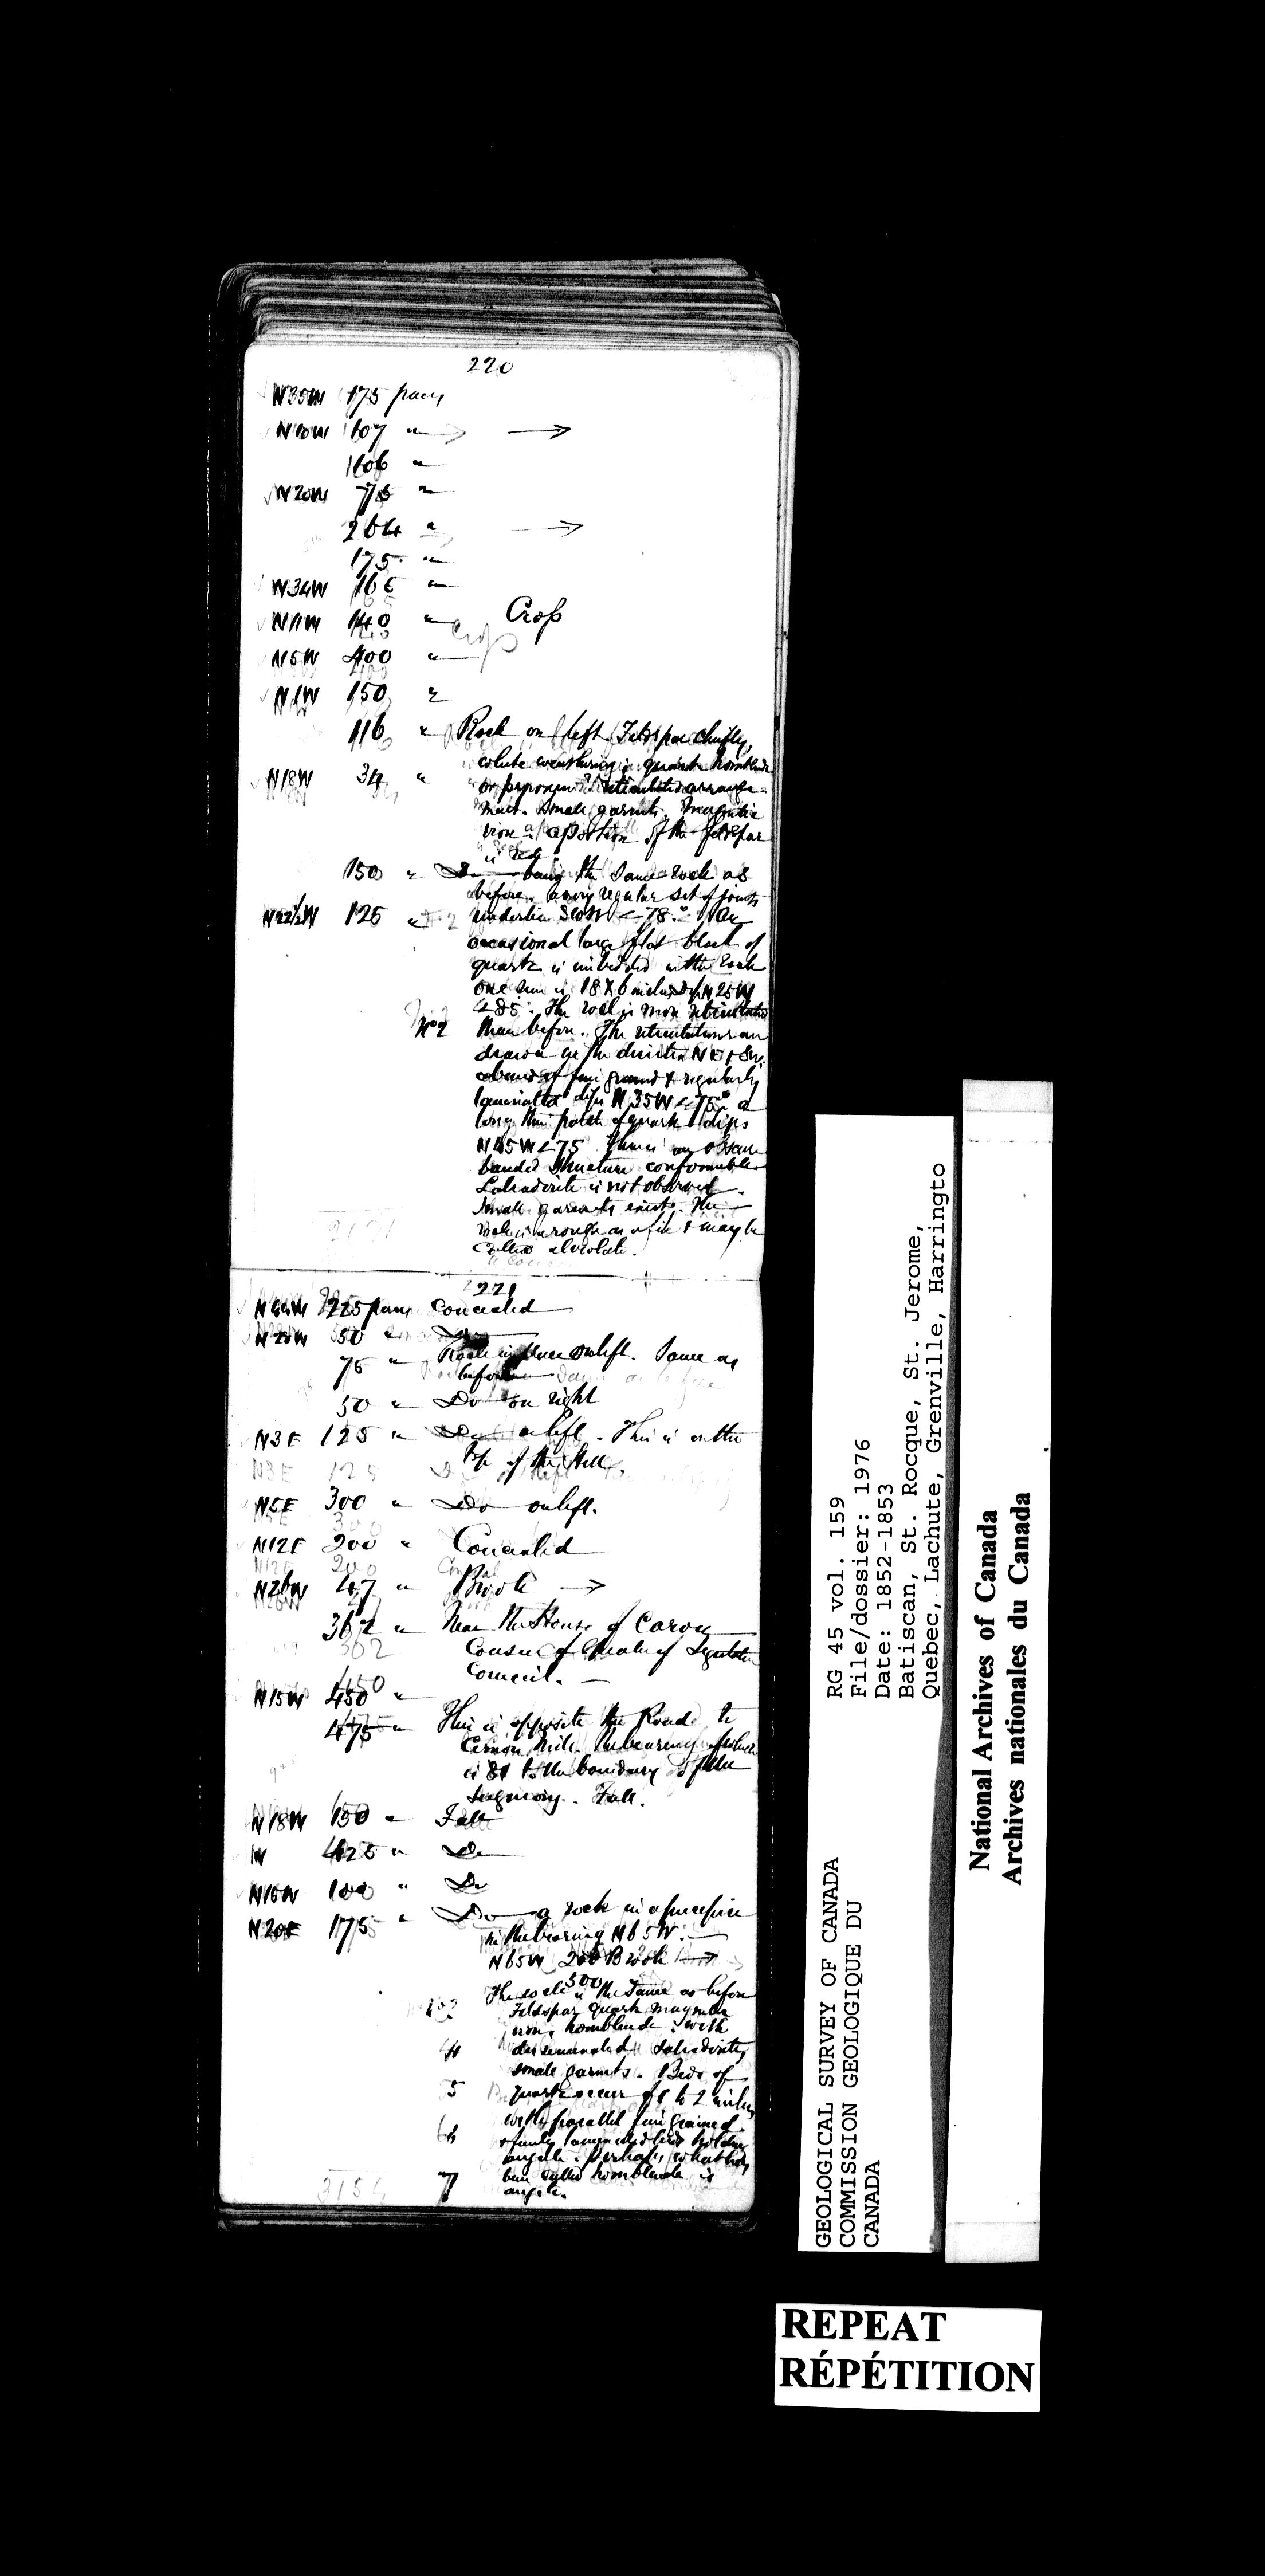 220
N35W 175 paces
N10W 107 " →
106 "
N20W 75 "
264 " →
175 "
N34W 165 "
N11W 140 " Cross
N5W 400 "
N1W 150 "
116 " Rock on left. Feldspar chiefly,
white weathering; quartz hornblende
N18W 34 " or pyroxene; reticulated arrange-
ment. Small garnets. Magnetic
iron a portion of the feldspar
is red
150 " Do being the same rock as
before. a very regular set of joints
N22½W 125 " underlie < 78° An
occasional large flat block of
quartz is imbedded in the rock
one seen is 18 X 6 inches dip N25W
< 85°. The rock is more reticulated
No 2 than before. The reticulations are
drawn in the direction NE & SW.
a band of fine grained & regularly
laminated dips N35W < 75° a
long thin patch of quartz dips
N45W < 75 There is an obscure
banded structure conformable
Labradorite is not observed.
Small garnets exists. The
rock is as rough as a file & may be
called
221
N44W 225 paces Concealed
N20W 50 " Do
75 " Rock in place on left. Same as
before
50 " Do on right
N3E 125 " Do on left. This is on the
top of the Hill.
N5E 300 " Do on left.
N12E 200 " Concealed
N26W 47 " Brook →
362 " Near the House of Caron
Cousin of of Legislative
Council.
N15W 450 "
475 " This is opposite the Road to
the bearing of which
is to the boundary of the
Seigniory. Fall.
N18W 150 " Fall
W 425 " Do
N15W 100 " Do
N20E 175 " Do a rock in a precipice
in the bearing N65W.
N65W 200 Brook →
300
The rock is the same as before
3 Feldspar quartz magnetic
iron, hornblende with
4 disseminated Labradorite,
small garnets. Beds of
5 quartz occur of 1 to 2 inches
with parallel fine grained
6 & finely laminated beds holding
augite. Perhaps what has
7 been called hornblende is
augite.
3154
GEOLOGICAL SURVEY OF CANADA
COMMISSION GEOLOGIQUE DU
CANADA
RG 45 vol. 159
File/dossier: 1976
Date: 1852-1853
Batiscan, St. Rocque, St. Jerome,
Quebec, Lachute, Grenville, Harringto
National Archives of Canada
Archives nationales du Canada
REPEAT
RÉPÉTITION